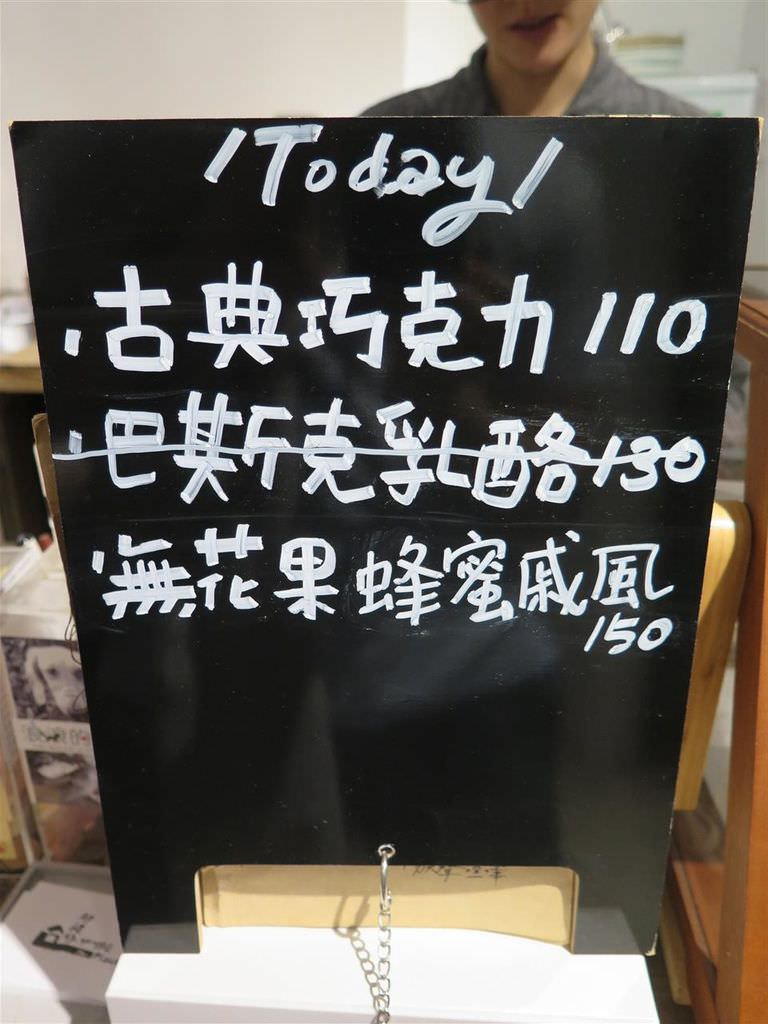 /Today/
·古典巧克力 110
·巴斯克乳酪 130
·無花果蜂蜜戚風
150